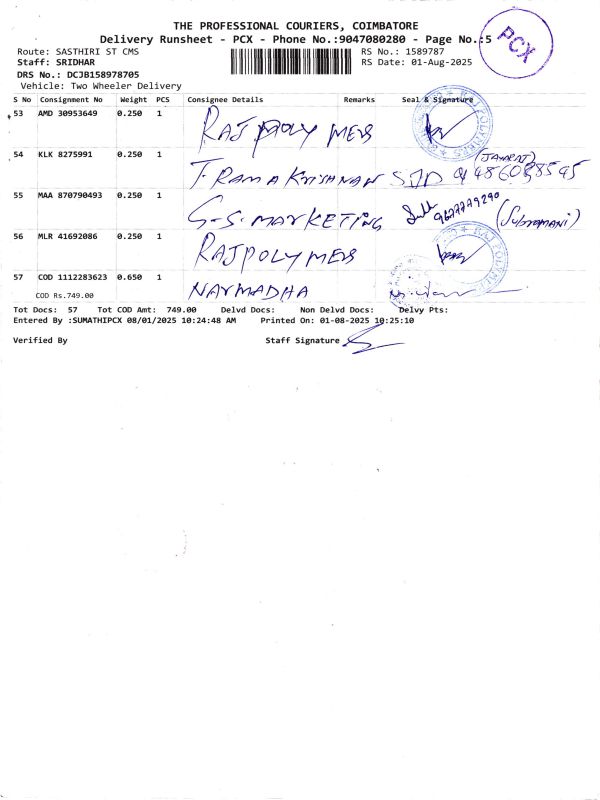 THE PROFESSIONAL COURIERS, COIMBATORE
Delivery Runsheet - PCX - Phone No.:9047080280 - Page No.:5
PCX
Route: SASTHIRI ST CMS RS No.: 1589787
Staff: SRIDHAR RS Date: 01-Aug-2025
DRS No.: DCJB158978705
Vehicle: Two Wheeler Delivery
S No Consignment No Weight PCS Consignee Details Remarks Seal & Signature
53 AMD 30953649 0.250 1 RAJ POLYMERS
54 KLK 8275991 0.250 1 T. RAMAKRISHNAN
55 MAA 870790493 0.250 1 G-S. MARKETING (Subramani)
56 MLR 41692086 0.250 1 RAJPOLYMERS
57 COD 1112283623 0.650 1 NARMADHA
COD Rs.749.00
Tot Docs: 57 Tot COD Amt: 749.00 Delvd Docs: Non Delvd Docs: Delvy Pts:
Entered By :SUMATHIPCX 08/01/2025 10:24:48 AM Printed On: 01-08-2025 10:25:10
Verified By Staff Signature